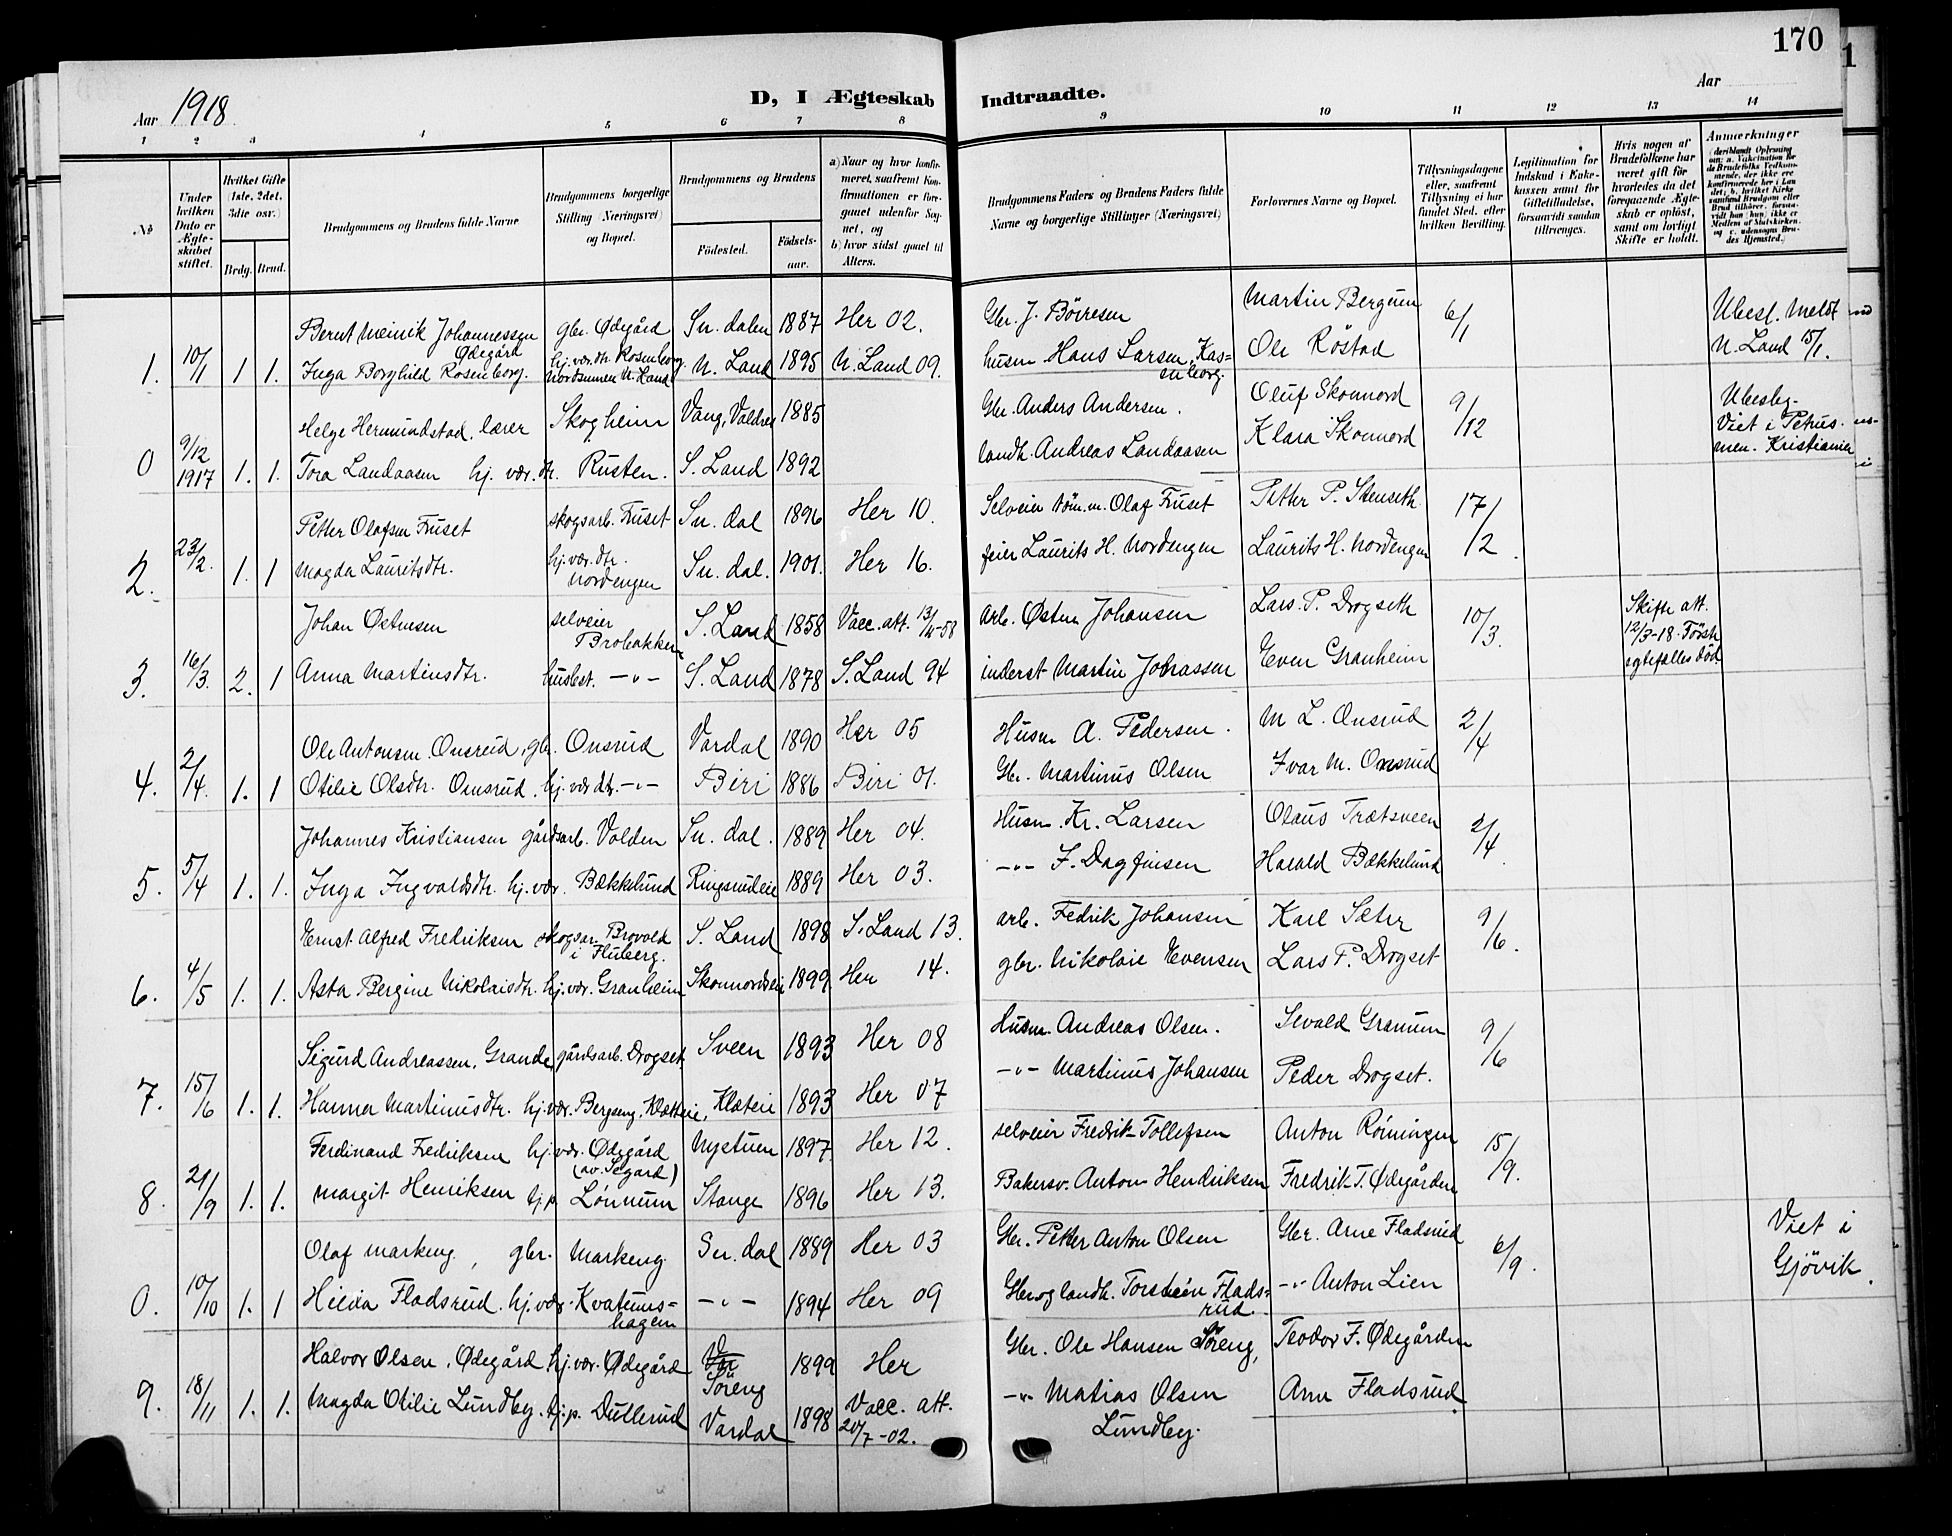 170
1
Aar 1918.
D, I Ægteskab Indtraadte.
Aar
1 2 3 4 5 6 7 8 9 10 11 12 13 14
No
Under hvilken Dato er Ægteskabet stiftet.
Hvilket Gifte (1ste, 2det, 3die osv.)
Brdg. Brud.
Brudgommens og Brudens fulde Navne
Brudgommens borgerlige Stilling (Næringsvei) og Bopæl.
Brudgommens og Brudens
Fødested. Fødsels-aar.
a) Naar og hvor konfirmeret, saafremt Konfirmationen er foregaaet udenfor Sognet, og
b) hvor sidst gaaet til Alters.
Brudgommens Faders og Brudens Faders fulde Navne og borgerlige Stillinger (Næringsvei)
Forlovernes Navne og Bopæl.
Tillysningsdagene eller, saafremt Tillysning ei har fundet Sted, efter hvilken Bevilling.
Legitimation for Indskud i Enkekassen samt for Giftetilladelse, forsaavidt saadan tiltrænges.
Hvis nogen af Brudefolkene har været gift før hvorledes da det foregaaende Ægteskab er opløst, samt om lovligt Skifte er holdt.
Anmærkninger
Bernt Meinik Johannessen Ødegård gbr. Ødegård Sn. dalen 1887 Her 02. Gbr. J. Børresen Martin Bergum 6/1 Ubesl. Meldt
1. 10/1 1 1. Inga Borghild Rosenborg. hj.vær.dtr. Rosenborg Nordsinnen N. Land N. Land 1895 N. Land 09. husm Hans Larsen, Ole Røstad N. Land 15/1.
Helge Hermundstad, lærer Skogheim Vang, Valdres 1885 Gbr. Anders Andersen. Oluf Skonnord 9/12 Ubeslg.
0 9/12 1917 1. 1. Tora Landaasen hj. vær. dtr. Rusten. S. Land 1892 landh. Andreas Landaasen Klara Skonnord Viet i Petrus- men. Kristiania
Petter Olafsen Fuset skogsarb. Fuset Sn. dal 1896 Her 10. Selveier tøm.m. Olaf Fuset Petter P. Stenseth 17/2.
2. 23/2. 1. 1 Magda Lauritsdtr. hj.vær.dtr. Nordengen Sn. dal. 1901. Her 16. feier Laurits H. Nordengen Laurits H. Nordengen
Johan Østensen selveier Brobakken S. Land 1858 Vacc. att. 13/11-58 arb. Østen Johansen Lars P. Drogseth 10/3. Skifte att. 12/3-18. Første egtefælles død
3. 16/3. 2. 1 Anna Martinsdtr. husbest. -"- S. Land 1878 S. Land 94 inderst Martin Johrassen Even Granheim
Ole Antonsen Onsrud, gbr. Onsrud Vardal 1890 Her 05 Husm A. Pedersen. M L. Onsrud 2/4
4. 2/4. 1. 1 Otilie Olsdtr. Onsrud, hj.vær dtr. -"- Biri 1886 Biri 01. Gbr. Martinus Olsen Ivar M. Onsrud
Johannes Kristiansen gårdsarb. Volden Sn. dal. 1889 Her 04. Husm. Kr. Larsen Olaus Trætsveen 2/4.
5. 5/4 1. 1. Inga Ingvaldsdtr. hj.vær. Bækkelund Ringsrudeie 1889 Her 03. -"- F. Dagfinsen Harald Bækkelund
Ernst Alfred Fredriksen skogsar. Brovold i Fluberg. S. Land 1898 S. Land 13. arb. Fedrik Johansen Karl Sæter 9/6.
6. 4/5 1. 1. Asta Bergine Nikolaisdtr. hj.vær. Granheim Skonnordseie 1899 Her 14. gbr. Nikolaie Evensen Lars P. Drogset
Sigurd Andreassen, Grande, gårdsarb. Drogset Sveen 1893 Her 08 Husm. Andreas Olsen. Sevald Granum 9/6
7. 15/6 1. 1. Hanna Martinusdtr. hj.vær. Bergseng, Klætteie, Klæteie 1893 Her 07 -"- Martinus Johansen Peder Drogset.
Ferdinand Fredriksen hj.vær. Ødegård (av. Segård) Nystuen 1897 Her 12. selveier Fredrik Tollefsen Anton Røiningen 15/9.
8. 21/9 1. 1. Margit Henriksen tj.p. Lønnum Stange 1896 Her 13. Bakersv. Anton Hendriksen Fredrik T. Ødegården
Olaf Markeng, gbr. Markeng. Sn. dal 1889 Her 03 Gbr. Petter Anton Olsen Gbr. Arne Fladsrud 6/9. Viet i Gjøvik.
0. 10/10 1. 1 Hilda Fladsrud. hj.vær. Kvatums= hagen -"- 1894 Her 09 Gbr. og landh. Torstein Flads= rud. -"- Anton Lien
Halvor Olsen, Ødegård hj.vær. Ødegård Søreng 1899 Her Gbr. Ole Hansen Søreng, Teodor F. Ødegården
9. 18/11 1. 1. Magda Otilie Lundby. tj.p. Dullerud Vardal 1898 Vacc. att. 20/7-02. -"- Matias Olsen Lundby. Arne Fladsrud.